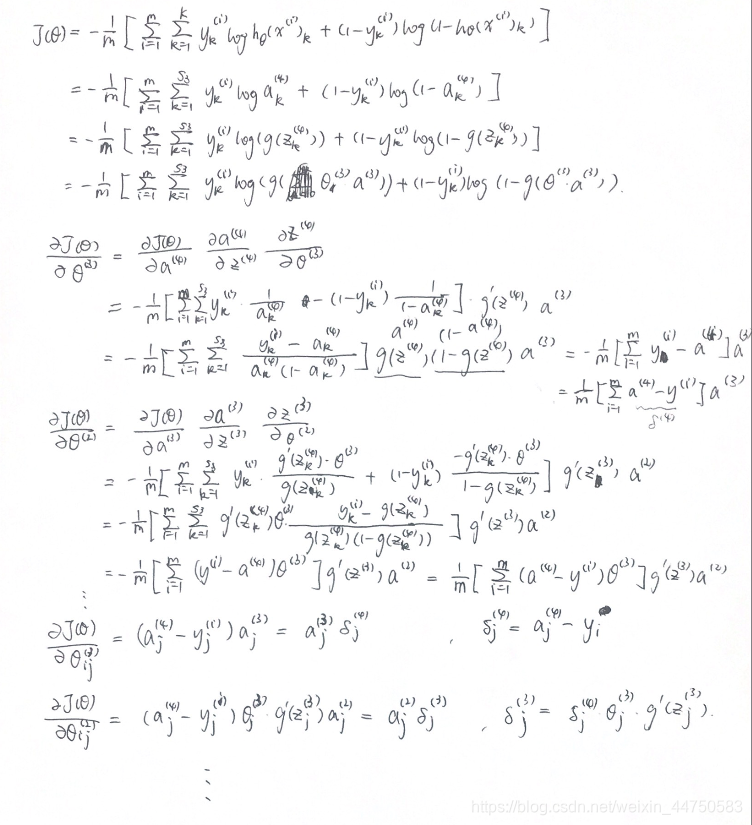 J(θ) = -1/m [ Σ_{i=1}^{m} Σ_{k=1}^{k} y_k^{(i)} log h_θ(x^{(i)})_k + (1-y_k^{(i)}) log(1-h_θ(x^{(i)})_k) ]
= -1/m [ Σ_{i=1}^{m} Σ_{k=1}^{S_3} y_k^{(i)} log a_k^{(4)} + (1-y_k^{(i)}) log(1-a_k^{(4)}) ]
= -1/m [ Σ_{i=1}^{m} Σ_{k=1}^{S_3} y_k^{(i)} log(g(z_k^{(4)})) + (1-y_k^{(i)}) log(1-g(z_k^{(4)})) ]
= -1/m [ Σ_{i=1}^{m} Σ_{k=1}^{S_3} y_k^{(i)} log(g(θ^{(3)}·a^{(3)})) + (1-y_k^{(i)}) log(1-g(θ^{(3)}·a^{(3)})).
∂J(θ)/∂θ^{(3)} = ∂J(θ)/∂a^{(4)} ∂a^{(4)}/∂z^{(4)} ∂z^{(4)}/∂θ^{(3)}
= -1/m [ Σ_{i=1}^{m} Σ_{k=1}^{S_3} y_k^{(i)} · 1/a_k^{(4)} - (1-y_k^{(i)}) 1/(1-a_k^{(4)}) ] · g'(z^{(4)}) a^{(3)}
a^{(4)} (1-a^{(4)})
= -1/m [ Σ_{i=1}^{m} Σ_{k=1}^{S_3} (y_k^{(i)} - a_k^{(4)})/(a_k^{(4)}(1-a_k^{(4)})) ] g(z^{(4)})(1-g(z^{(4)})) a^{(3)} = -1/m [ Σ_{i=1}^{m} y^{(i)} - a^{(4)} ] a^{(3)}
= 1/m [ Σ_{i=1}^{m} a^{(4)} - y^{(i)} ] a^{(3)}
δ^{(4)}
∂J(θ)/∂θ^{(2)} = ∂J(θ)/∂a^{(3)} ∂a^{(3)}/∂z^{(3)} ∂z^{(3)}/∂θ^{(2)}
= -1/m [ Σ_{i=1}^{m} Σ_{k=1}^{S_3} y_k^{(i)} · g'(z_k^{(4)})·θ^{(3)}/g(z_k^{(4)}) + (1-y_k^{(i)}) -g'(z_k^{(4)})·θ^{(3)}/(1-g(z_k^{(4)})) ] g'(z^{(3)}) a^{(2)}
= -1/m [ Σ_{i=1}^{m} Σ_{k=1}^{S_3} g'(z_k^{(4)}) θ^{(3)} · (y_k^{(i)} - g(z_k^{(4)}))/(g(z_k^{(4)})(1-g(z_k^{(4)}))) ] g'(z^{(3)}) a^{(2)}
= -1/m [ Σ_{i=1}^{m} (y^{(i)} - a^{(4)}) θ^{(3)} ] g'(z^{(3)}) a^{(2)} = 1/m [ Σ_{i=1}^{m} (a^{(4)} - y^{(i)}) θ^{(3)} ] g'(z^{(3)}) a^{(2)}
⋮
∂J(θ)/∂θ_{ij}^{(3)} = (a_j^{(4)} - y_j^{(i)}) a_j^{(3)} = a_j^{(3)} δ_j^{(4)} , δ_j^{(4)} = a_j^{(4)} - y_i
∂J(θ)/∂θ_{ij}^{(2)} = (a_j^{(4)} - y_j^{(i)}) θ_j^{(3)} · g'(z_j^{(3)}) a_j^{(2)} = a_j^{(2)} δ_j^{(3)} , δ_j^{(3)} = δ_j^{(4)} · θ_j^{(3)} · g'(z_j^{(3)}).
⋮
https://blog.csdn.net/weixin_44750583